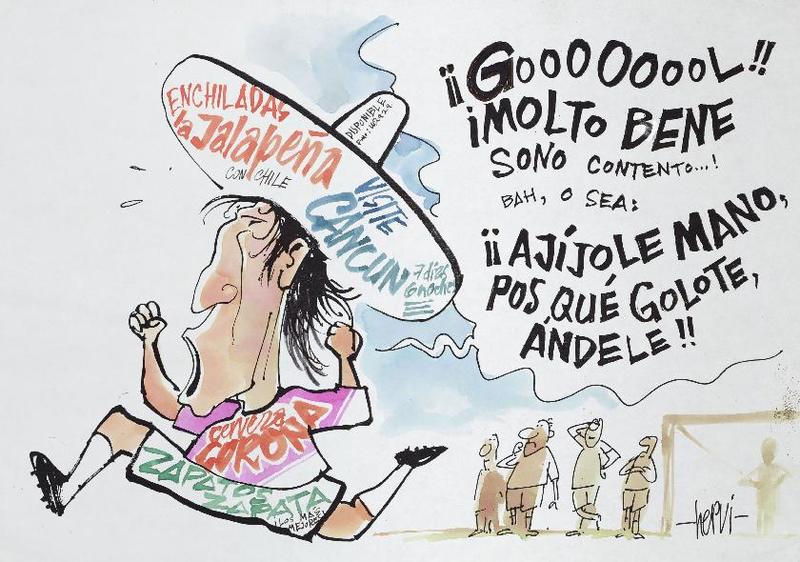 ¡¡GOOOOOOOOL!!
¡MOLTO BENE
SONO CONTENTO...!
BAH, O SEA:
¡¡AJÍJOLE MANO,
POS QUÉ GOLOTE,
ÁNDELE!!
ENCHILADAS
la Jalapeña
CON CHILE
DISPONIBLE
VISITE
CANCUN
7 días
6 noches
Cerveza
CORONA
ZAPATOS
ZAPATA
¡LOS MAS
MEJORES!
-hervi-